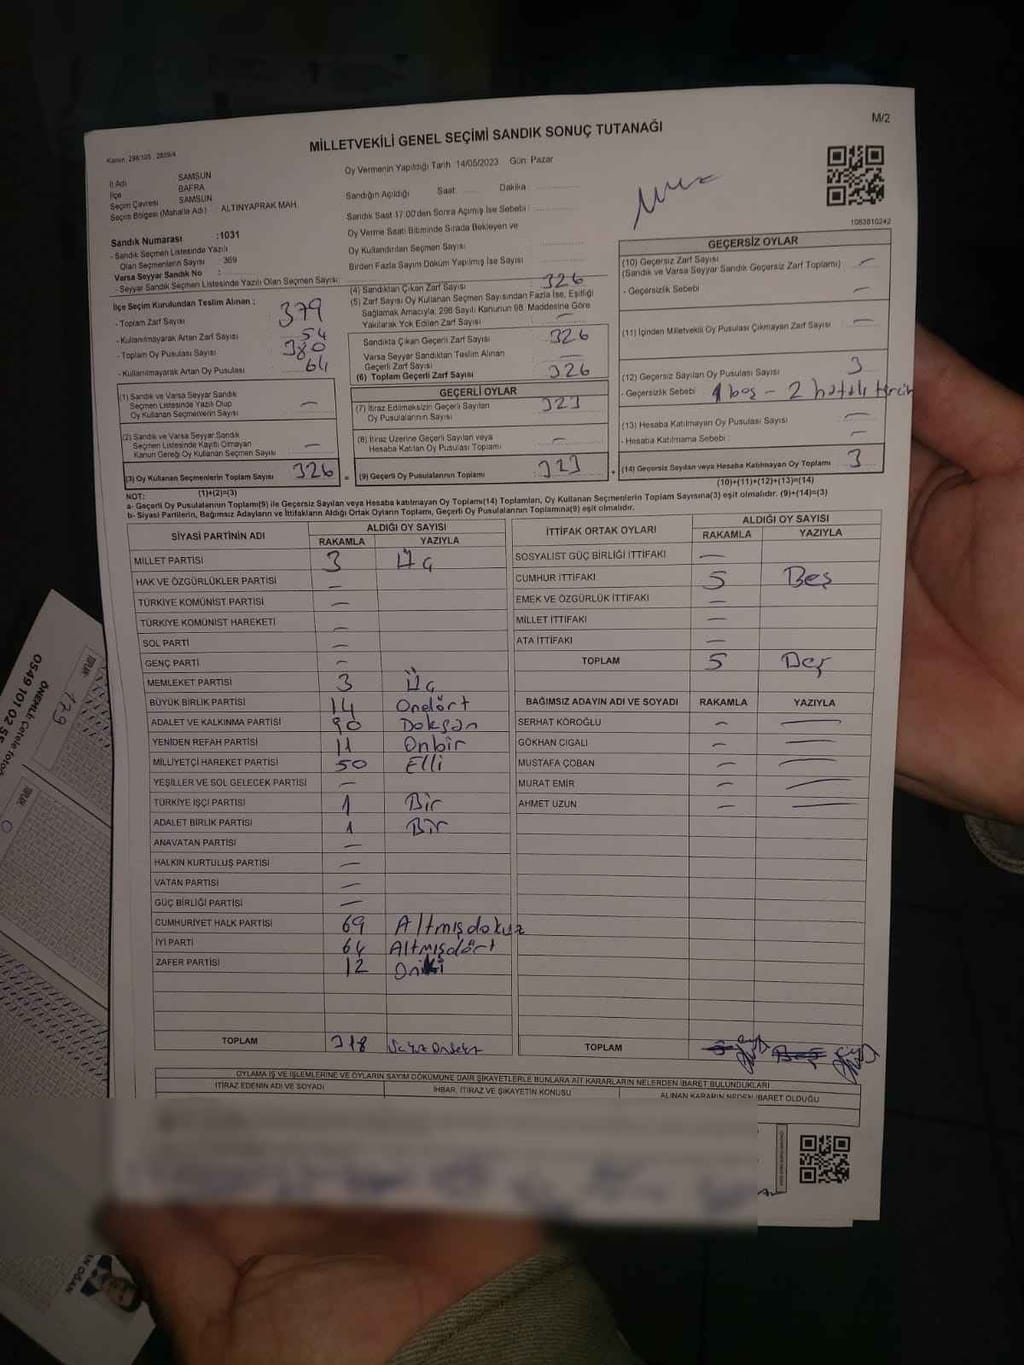 M/2
MİLLETVEKİLİ GENEL SEÇİMİ SANDIK SONUÇ TUTANAĞI
Kanun 298/105, 2839/4
İl Adı SAMSUN
İlçe BAFRA
Seçim Çevresi SAMSUN
Seçim Bölgesi (Mahalle Adı) : ALTINYAPRAK MAH.
Oy Vermenin Yapıldığı Tarih 14/05/2023 Gün: Pazar
Sandığın Açıldığı Saat: Dakika
Sandık Saat 17.00'den Sonra Açılmış İse Sebebi :
Oy Verme Saati Bitiminde Sırada Bekleyen ve
Oy Kullandırılan Seçmen Sayısı
Birden Fazla Sayım Döküm Yapılmış İse Sayısı
1083810242
Sandık Numarası :1031
- Sandık Seçmen Listesinde Yazılı
Olan Seçmenlerin Sayısı : 369
Varsa Seyyar Sandık No :
- Seyyar Sandık Seçmen Listesinde Yazılı Olan Seçmen Sayısı:
İlçe Seçim Kurulundan Teslim Alınan :
- Toplam Zarf Sayısı 379
- Kullanılmayarak Artan Zarf Sayısı 54
- Toplam Oy Pusulası Sayısı 380
- Kullanılmayarak Artan Oy Pusulası
(1) Sandık ve Varsa Seyyar Sandık
Seçmen Listesinde Yazılı Olup
Oy Kullanan Seçmenlerin Sayısı –
(2) Sandık ve Varsa Seyyar Sandık
Seçmen Listesinde Kayıtlı Olmayan
Kanun Gereği Oy Kullanan Seçmen Sayısı –
(3) Oy Kullanan Seçmenlerin Toplam Sayısı 326
(1)+(2)=(3)
(4) Sandıktan Çıkan Zarf Sayısı 326
(5) Zarf Sayısı Oy Kullanan Seçmen Sayısından Fazla İse, Eşitliği
Sağlamak Amacıyla, 298 Sayılı Kanunun 98. Maddesine Göre
Yakılarak Yok Edilen Zarf Sayısı –
Sandıkta Çıkan Geçerli Zarf Sayısı 326
Varsa Seyyar Sandıktan Teslim Alınan
Geçerli Zarf Sayısı –
(6) Toplam Geçerli Zarf Sayısı 326
GEÇERLİ OYLAR
(7) İtiraz Edilmeksizin Geçerli Sayılan
Oy Pusulalarının Sayısı 323
(8) İtiraz Üzerine Geçerli Sayılan veya
Hesaba Katılan Oy Pusulası Toplamı –
(9) Geçerli Oy Pusulalarının Toplamı 323
GEÇERSİZ OYLAR
(10) Geçersiz Zarf Sayısı –
(Sandık ve Varsa Seyyar Sandık Geçersiz Zarf Toplamı)
- Geçersizlik Sebebi –
(11) İçinden Milletvekili Oy Pusulası Çıkmayan Zarf Sayısı –
(12) Geçersiz Sayılan Oy Pusulası Sayısı 3
- Geçersizlik Sebebi 1 boş – 2 hatalı tercih
(13) Hesaba Katılmayan Oy Pusulası Sayısı –
- Hesaba Katılmama Sebebi : –
(14) Geçersiz Sayılan veya Hesaba Katılmayan Oy Toplamı 3
(10)+(11)+(12)+(13)=(14)
NOT:
a- Geçerli Oy Pusulalarının Toplamı(9) ile Geçersiz Sayılan veya Hesaba katılmayan Oy Toplamı(14) Toplamları, Oy Kullanan Seçmenlerin Toplam Sayısına(3) eşit olmalıdır. (9)+(14)=(3)
b- Siyasi Partilerin, Bağımsız Adayların ve İttifakların Aldığı Ortak Oyların Toplamı, Geçerli Oy Pusulalarının Toplamına(9) eşit olmalıdır.
SİYASİ PARTİNİN ADI ALDIĞI OY SAYISI
RAKAMLA YAZIYLA
MİLLET PARTİSİ 3 Üç
HAK VE ÖZGÜRLÜKLER PARTİSİ –
TÜRKİYE KOMÜNİST PARTİSİ –
TÜRKİYE KOMÜNİST HAREKETİ –
SOL PARTİ –
GENÇ PARTİ –
MEMLEKET PARTİSİ 3 Üç
BÜYÜK BİRLİK PARTİSİ 14 Ondört
ADALET VE KALKINMA PARTİSİ 90 Doksan
YENİDEN REFAH PARTİSİ 11 Onbir
MİLLİYETÇİ HAREKET PARTİSİ 50 Elli
YEŞİLLER VE SOL GELECEK PARTİSİ –
TÜRKİYE İŞÇİ PARTİSİ 1 Bir
ADALET BİRLİK PARTİSİ 1 Bir
ANAVATAN PARTİSİ –
HALKIN KURTULUŞ PARTİSİ –
VATAN PARTİSİ –
GÜÇ BİRLİĞİ PARTİSİ –
CUMHURİYET HALK PARTİSİ 69 Altmışdokuz
İYİ PARTİ 64 Altmışdört
ZAFER PARTİSİ 12 Oniki
TOPLAM 318
İTTİFAK ORTAK OYLARI ALDIĞI OY SAYISI
RAKAMLA YAZIYLA
SOSYALİST GÜÇ BİRLİĞİ İTTİFAKI –
CUMHUR İTTİFAKI 5 Beş
EMEK VE ÖZGÜRLÜK İTTİFAKI –
MİLLET İTTİFAKI –
ATA İTTİFAKI –
TOPLAM 5 Beş
BAĞIMSIZ ADAYIN ADI VE SOYADI RAKAMLA YAZIYLA
SERHAT KÖROĞLU –
GÖKHAN CIGALI –
MUSTAFA ÇOBAN –
MURAT EMİR –
AHMET UZUN –
TOPLAM
OYLAMA İŞ VE İŞLEMLERİNE VE OYLARIN SAYIM DÖKÜMÜNE DAİR ŞİKAYETLERLE BUNLARA AİT KARARLARIN NELERDEN İBARET BULUNDUKLARI
İTİRAZ EDENİN ADI VE SOYADI İHBAR, İTİRAZ VE ŞİKAYETİN KONUSU ALINAN KARARIN NEDEN İBARET OLDUĞU
0549 101 02 55
179